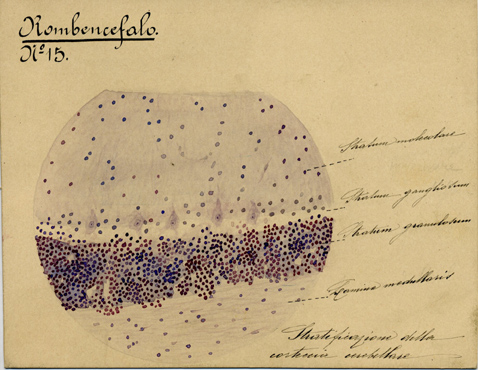 Rombencefalo.
Nº 15.
Stratum moleculare
Stratum gangliosum
Stratum granulosum
Lamina medullaris
Stratificazione della
corteccia cerebellare